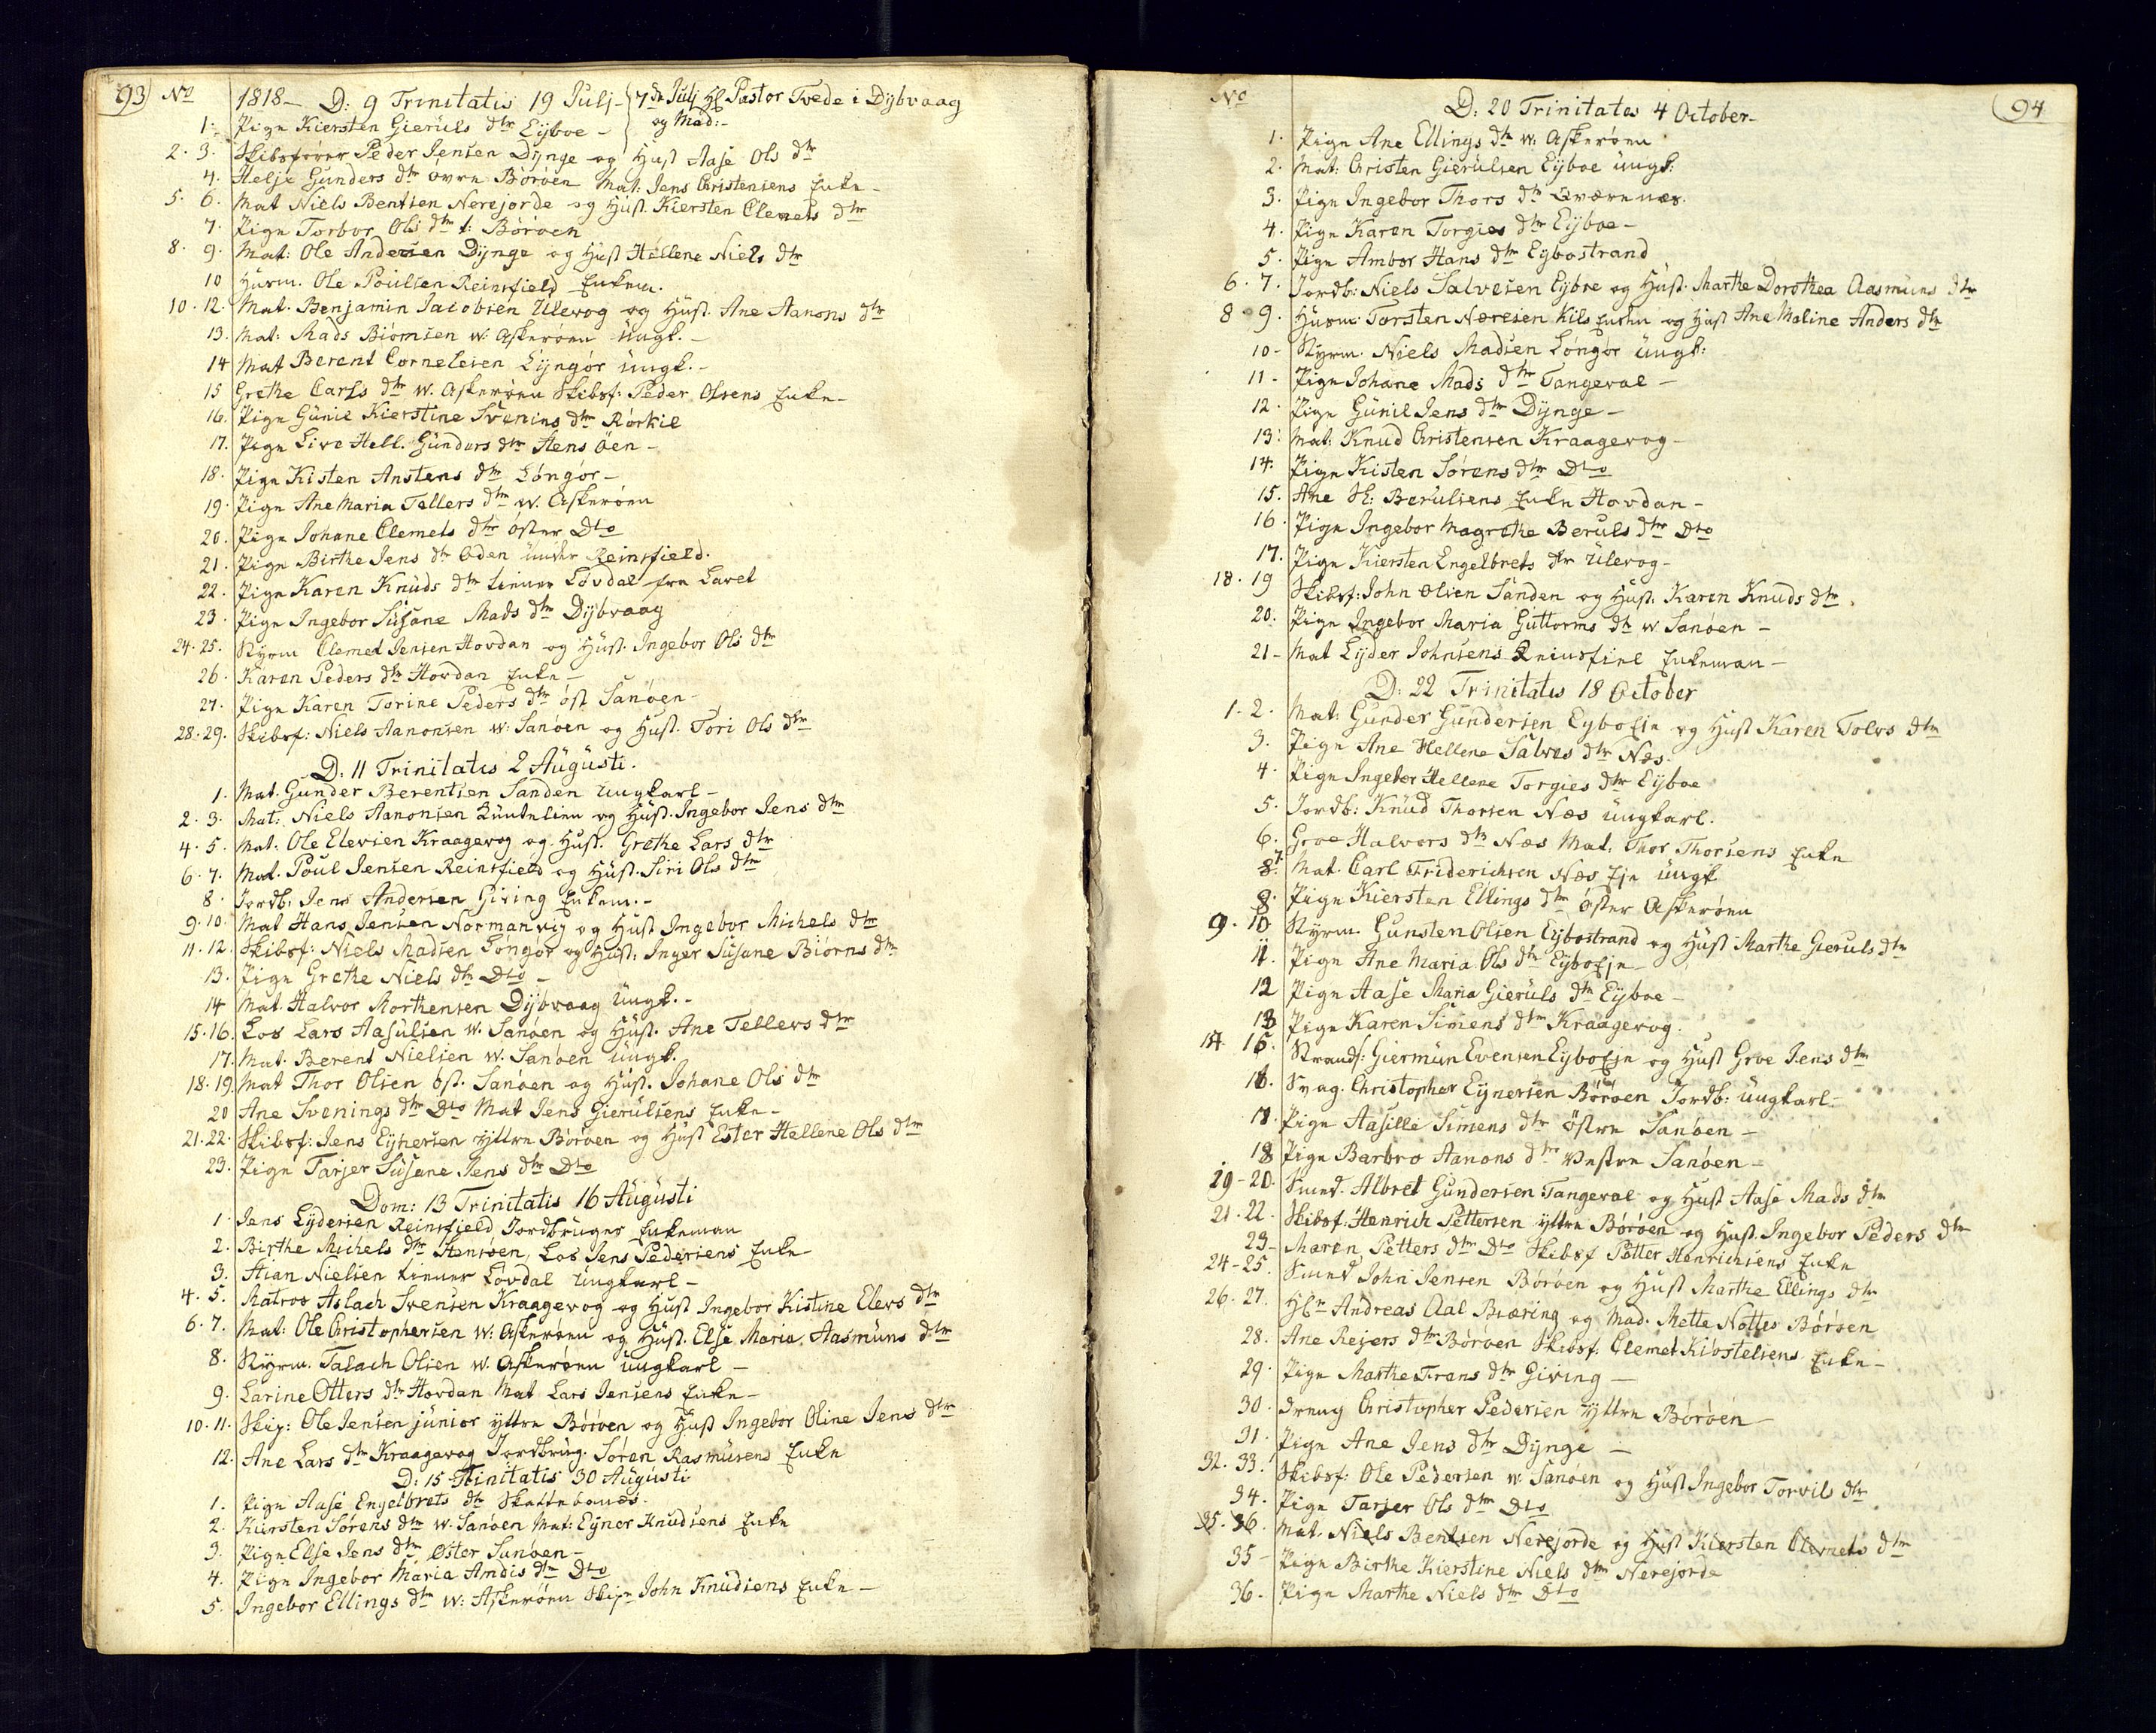 93) No 1818 – D: 9 Trinitatis 19 Julj – 7de Julj Hl Pastor Tvede i Dybvaag
og Mad:–
1. Pige Kiersten Gieruls dtr Eÿboe –
2. 3. Skibsfører Peder Jensen Dÿnge og Hust Aase Ols dtr
4. Helje Gunders dtr øvre Børøen Mat: Jens Christensens Enke –
5. 6. Mat Niels Bentsen Nerejorde og Hust. Kiersten Clemets dtr
7. Pige Torbor Ols dtr t: Børøen
8. 9. Mat: Ole Andersen Dÿnge og Hust Hellene Niels dtr
10 Husm. Ole Poulsen Reinsfield Enkem.
10. 12. Mat. Benjamin Jacobsen Ulevog og Hust. Ane Aanons dtr
13. Mat: Mads Biørnsen w: Askerøen Ungk. –
14 Mat Berent Cornelesen Lÿngør ungk. –
15 Grethe Carls dtr w. Askerøen Skibsf: Peder Olsens Enke –
16. Pige Gunil Kierstine Svenins dtr Rørkil
17. Pige Live Hell. Gunders dtr Stensøen –
18. Pige Kisten Anstens dtr Løngør –
19. Pige Ane Maria Tellers dtr w. Askerøen
20. Pige Johane Clemets dtr øster Dto
21. Pige Birthe Jens dtr Oden under Reinsfield.
22. Pige Karen Knuds dtr tiener Løvdal fra Laret
23. Pige Ingebor Susane Mads dtr Dÿbvaag
24. 25. Styrm Clemet Jensen Hovdan og Hust. Ingebor Ols dtr
26. Karen Peders dtr Hovdan Enke –
27. Pige Karen Torine Peders dtr øst Sanøen –
28. 29. Skibsf: Niels Aanonsen w: Sanøen og Hust. Tori Ols dtr
D: 11 Trinitatis 2 Augusti.
1. Mat. Gunder Berentsen Sanden Ungkarl –
2. 3. Mat: Niels Aanonsen Quntelien og Hust. Ingebor Jens dtr
4. 5. Mat: Ole Elevsen Kraagevog og Hust. Grethe Lars dtr
6. 7. Mat. Poul Jensen Reinsfield og Hust. Siri Ols dtr
8. Jordb: Jens Andersen Giving Enkem. –
9. 10. Mat Hans Jensen Normanvig og Hust Ingebor Michels dtr
11. 12. Skibsf: Niels Madsen Løngør og Hust: Inger Susane Biørns dtr
13. Pige Grethe Niels dtr Dto –
14 Mat. Halvor Morthensen Dÿbvaag Ungk. –
15. 16. Los Lars Aasulsen w. Sanøen og Hust. Ane Tellers dtr
17. Mat. Berent Nielsen w. Sanøen ungk.
18. 19. Mat Thor Olsen øst. Sanøen og Hust. Johane Ols dtr
20 Ane Svenings dtr Dto Mat Jens Gierulsens Enke –
21. 22. Skibsf: Jens Eÿnersen Ÿttre Børøen og Hust Ester Hellene Ols dtr
23. Pige Tarjer Susane Jens dtr Dto
Dom: 13 Trinitatis 16 Augusti
1. Jens Lÿdersen Reinsfield Jordbruger Enkeman
2. Birthe Michels dtr Stensøen, Los Jens Pedersens Enke –
3. Stian Nielsen tiener Løvdal Ungkarl –
4. 5. Matros Aslach Svensen Kraagevog og Hust Ingebor Kistine Elevs dtr
6. 7. Mat: Ole Christophersen w: Askerøen og Hust. Else Maria Aasmuns dtr
8. Styrm. Talach Olsen w. Askerøen ungkarl –
9. Larine Otters dtr Hovdan Mat Lars Jensens Enke –
10. 11. Skip: Ole Jensen junior ÿttre Børøen og Hust Ingebor Oline Jens dtr
12. Ane Lars dtr Kraagevog Jordbrug. Søren Rasmusens Enke
D: 15 Trinitatis 30 Augusti
1. Pige Aase Engelbrets dtr Skattebonæs.
2. Kiersten Sørens dtr w. Sanøen Mat: Eÿner Knudsens Enke
3. Pige Else Jens dtr Øster Sanøen –
4. Pige Ingebor Maria Amdis dtr Dto
5. Ingebor Ellings dtr w: Askerøen Skipr John Knudsens Enke –
No D: 20 Trinitatis 4 October – (94
1. Pige Ane Ellings dtr w: Askerøen
2. Mat: Christen Gierulsen Eÿboe ungk:
3. Pige Ingebor Thors dtr Qværnnæs.
4. Pige Karen Torgies dtr Eÿboe –
5. Pige Ambor Hans dtr Eybostrand
6. 7. Jordb: Niels Salvesen Eÿboe og Hust. Marthe Dorothea Aasmuns dtr
8. 9. Husm: Torsten Næresen Kils Enden og Hust Ane Maline Anders dtr
10 – Styrm. Niels Madsen Løngør ungk:
11 – Pige Johane Mads dtr Tangeval –
12. Pige Gunil Jens dtr Dÿnge –
13: Mat: Knud Christensen Kraagevog –
14. Pige Kisten Sørens dtr Dto
15. Ane Sl: Berulsens Enke Hovdan –
16. Pige Ingebor Magrethe Beruls dtr Dto
17. Pige Kiersten Engelbrets dtr Ulevog –
18. 19 Skibsf: John Olsen Sanden og Hust. Karen Knuds dtr.
20. Pige Ingebor Maria Guttorms dtr w Sanøen –
21 – Mat Lÿder Johnsens Reinsfiel Enkeman –
D: 22 Trinitatis 18 October
1. 2. Mat: Gunder Gundersen EyboEje og Hust Karen Tolvs dtr
3. Pige Ane Hellene Salves dtr Næs.
4. Pige Ingebor Hellene Torgies dtr Eÿboe
5. Jordb: Knud Thorsen Næs ungkarl.
6. Groe Halvors dtr Næs Mat. Thor Thorsens Enke
7. Mat. Carl Friderichsen Næs Eje ungk
8. Pige Kiersten Ellings dtr Øster Askerøen
9. 10 Styrm. Gunsten Olsen Eÿbostrand og Hust Marthe Gieruls dtr
11. Pige Ane Maria Ols dtr EÿboEje –
12 Pige Aase Maria Gieruls dtr Eÿboe –
13 Pige Karen Simens dtr Kraagevog.
14. 15. Strands: Giermun Evensen EÿboEje og Hust Groe Jens dtr
16. Svag. Christopher Eÿnersen Børøen Jordb: ungkarl –
17. Pige Aasille Simens dtr Østre Sanøen –
18 Pige Barbro Aanons dtr Vestre Sanøen –
19 – 20. Smed. Albret Gundersen Tangeval og Hust Aase Mads dtr
21. 22. Skibsf: Henrich Pettersen ÿttre Børøen og Hust. Ingebor Peders dtr
23 – Maren Petters dtr Dto Skibsf Petter Henrichsens Enke
24 – 25. Smed John Jensen Børøen og Hust Marthe Ellings dtr
26. 27. Hlr Andreas Aal Biæring og Mad. Mette Nottes Børøen
28. Ane Rejers dtr Børøen Skibsf: Clemet Kibstelsens Enke –
29. Pige Marthe Frans dtr Giving –
30. Dreng Christopher Pedersen Ÿttre Børøen –
31. Pige Ane Jens dtr Dÿnge –
32. 33. Skibsf: Ole Pedersen w. Sanøen og Hust Ingebor Torvils dtr
34. Pige Tarjer Ols dtr Dto
35. 36. Mat. Niels Bentsen Nerejorde og Hust Kiersten Clemets dtr
35 – Pige Birthe Kierstine Niels dtr Nerejorde
36. Pige Marthe Niels dtr Dto